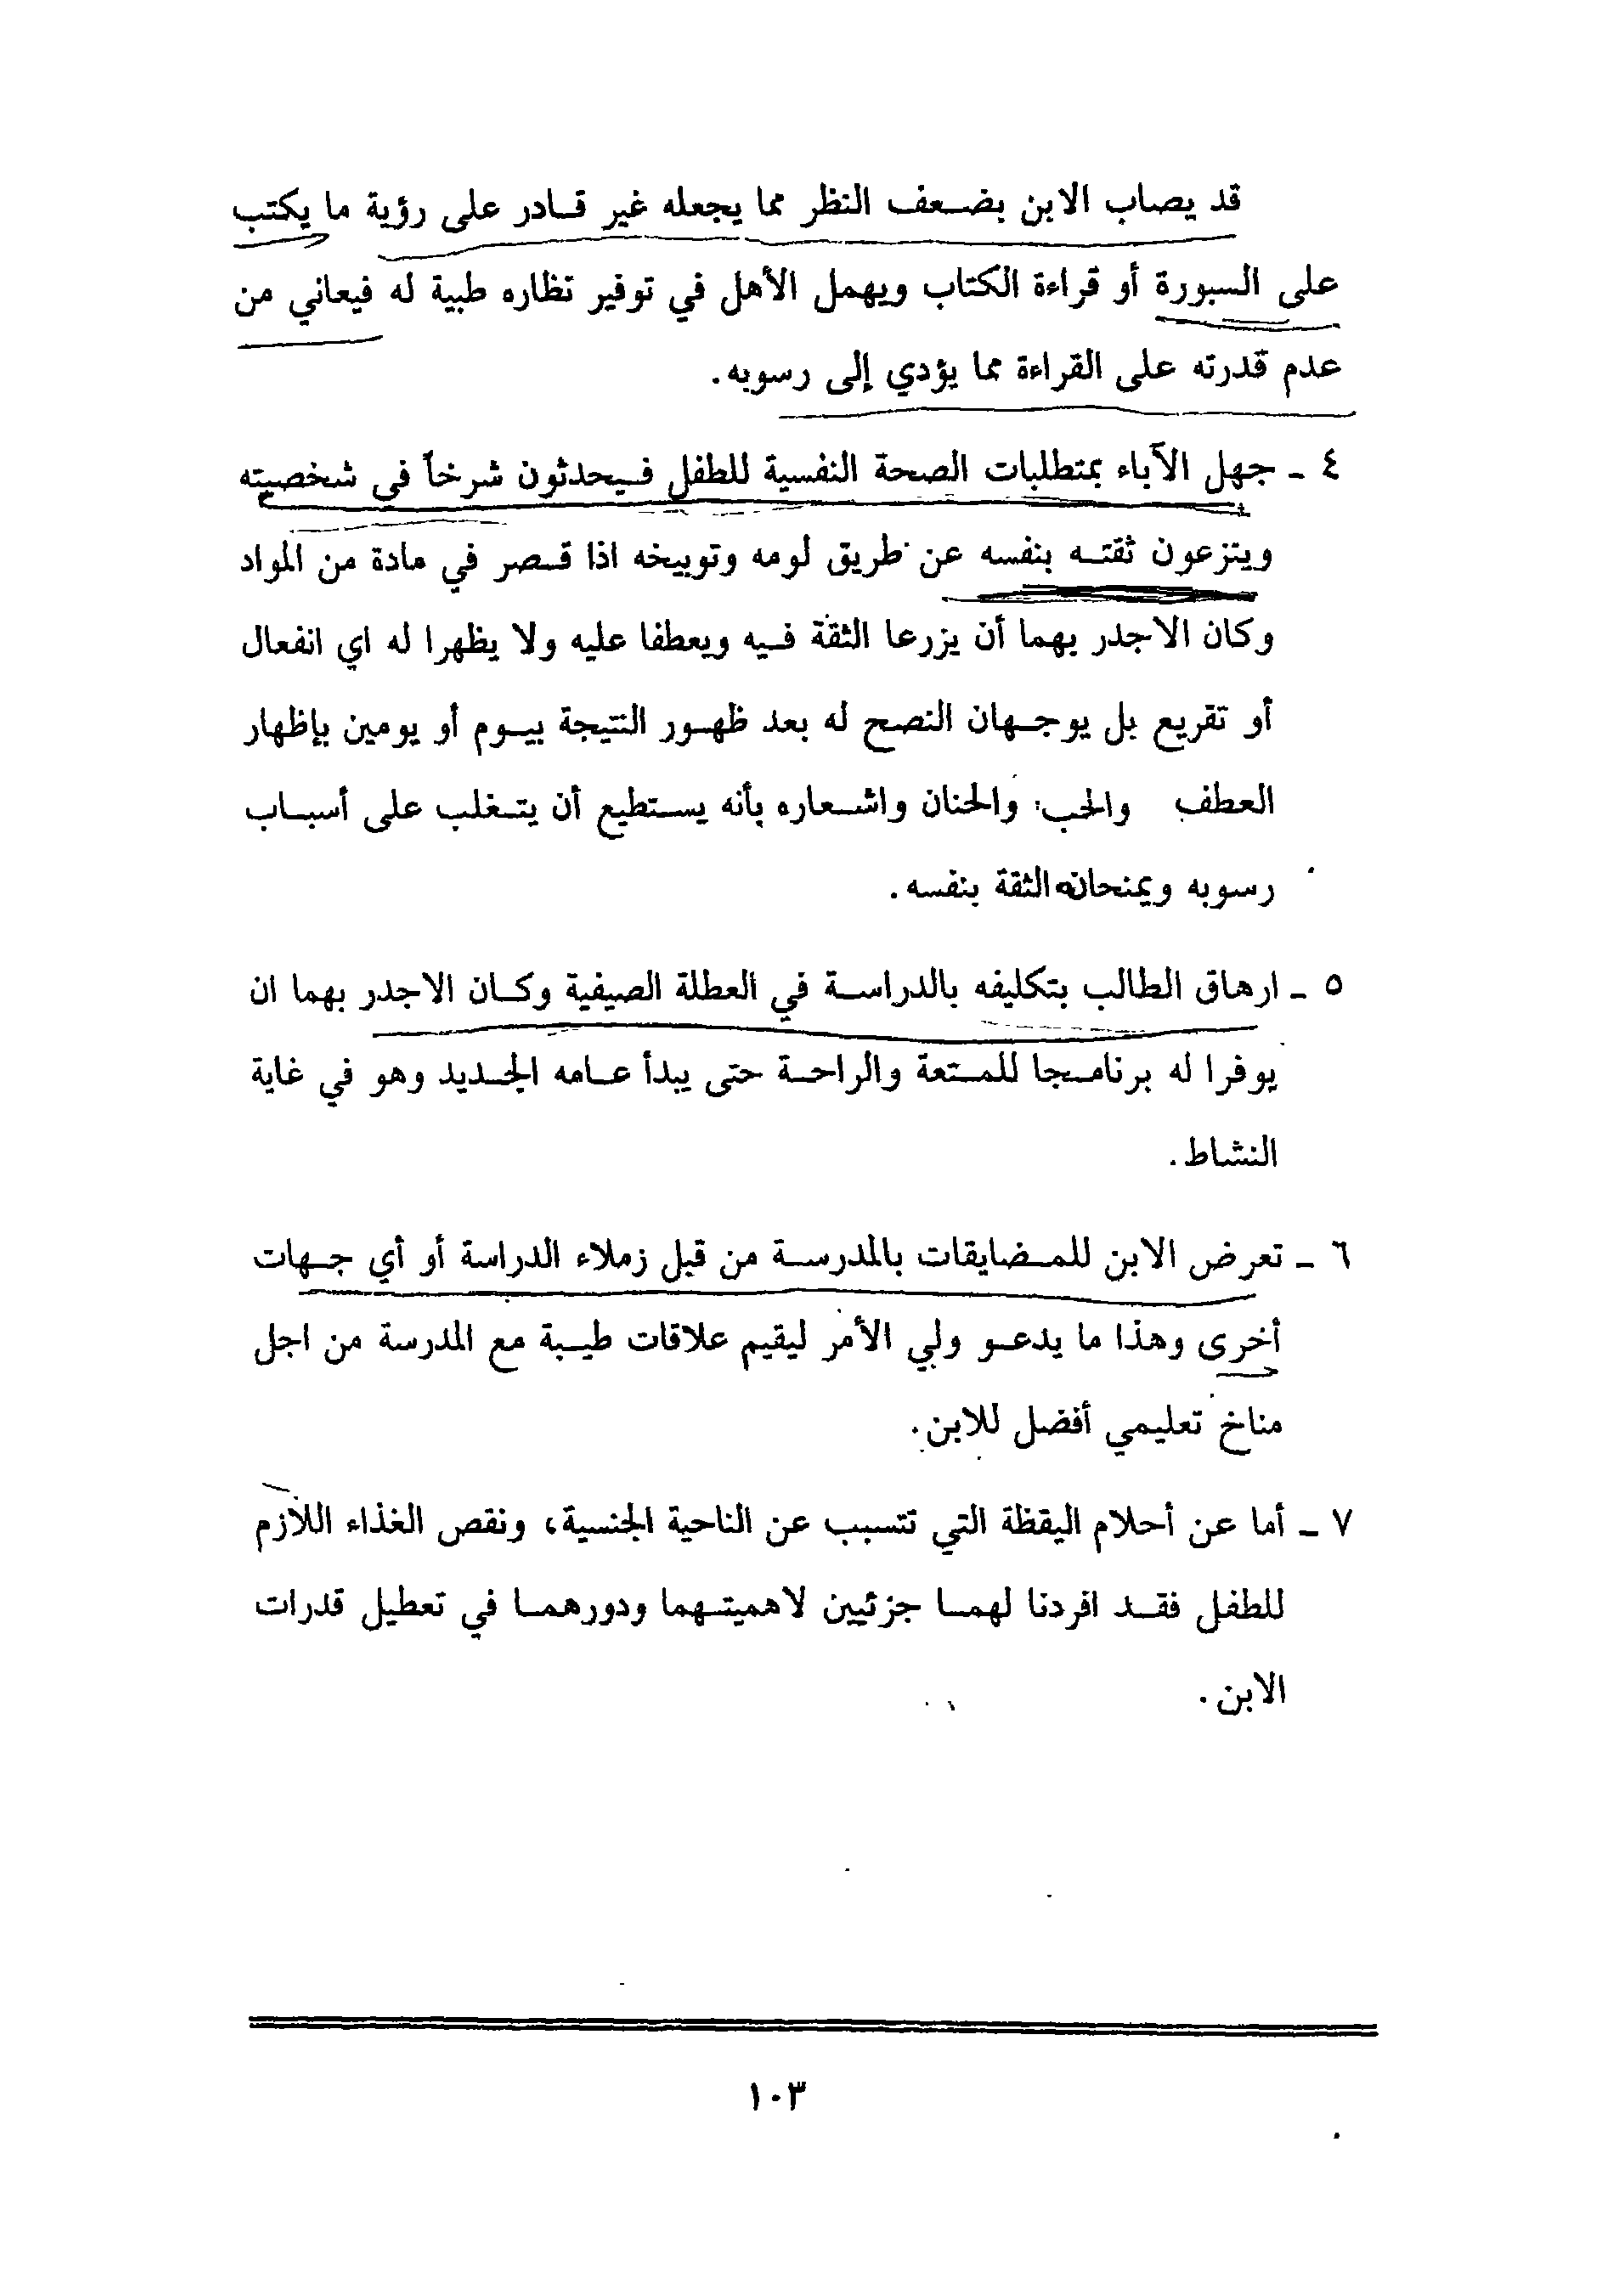 قد يصاب الابن بضعف النظر مما يجعله غير قادر على رؤية ما يكتب
على السبورة أو قراءة الكتاب ويهمل الأهل في توفير نظاره طبية له فيعاني من
عدم قدرته على القراءة مما يؤدي إلى رسوبه.
٤ - جهل الآباء بمتطلبات الصحة النفسية للطفل فيحدثون شرخاً في شخصيته
وينزعون ثقته بنفسه عن طريق لومه وتوبيخه اذا قصر في مادة من المواد
وكان الاجدر بهما أن يزرعا الثقة فيه ويعطفا عليه ولا يظهرا له اي انفعال
أو تقريع بل يوجهان النصح له بعد ظهور النتيجة بيوم أو يومين بإظهار
العطف والحب والحنان واشعاره بأنه يستطيع أن يتغلب على أسباب
رسوبه ويمنحانه الثقة بنفسه.
٥ - ارهاق الطالب بتكليفه بالدراسة في العطلة الصيفية وكان الاجدر بهما ان
يوفرا له برنامجا للمتعة والراحة حتى يبدأ عامه الجديد وهو في غاية
النشاط.
٦ - تعرض الابن للمضايقات بالمدرسة من قبل زملاء الدراسة أو أي جهات
أخرى وهذا ما يدعو ولي الأمر ليقيم علاقات طيبة مع المدرسة من اجل
مناخ تعليمي أفضل للابن.
٧ - أما عن أحلام اليقظة التي تتسبب عن الناحية الجنسية، ونقص الغذاء اللازم
للطفل فقد افردنا لهما جزئيين لاهميتهما ودورهما في تعطيل قدرات
الابن.
١٠٣